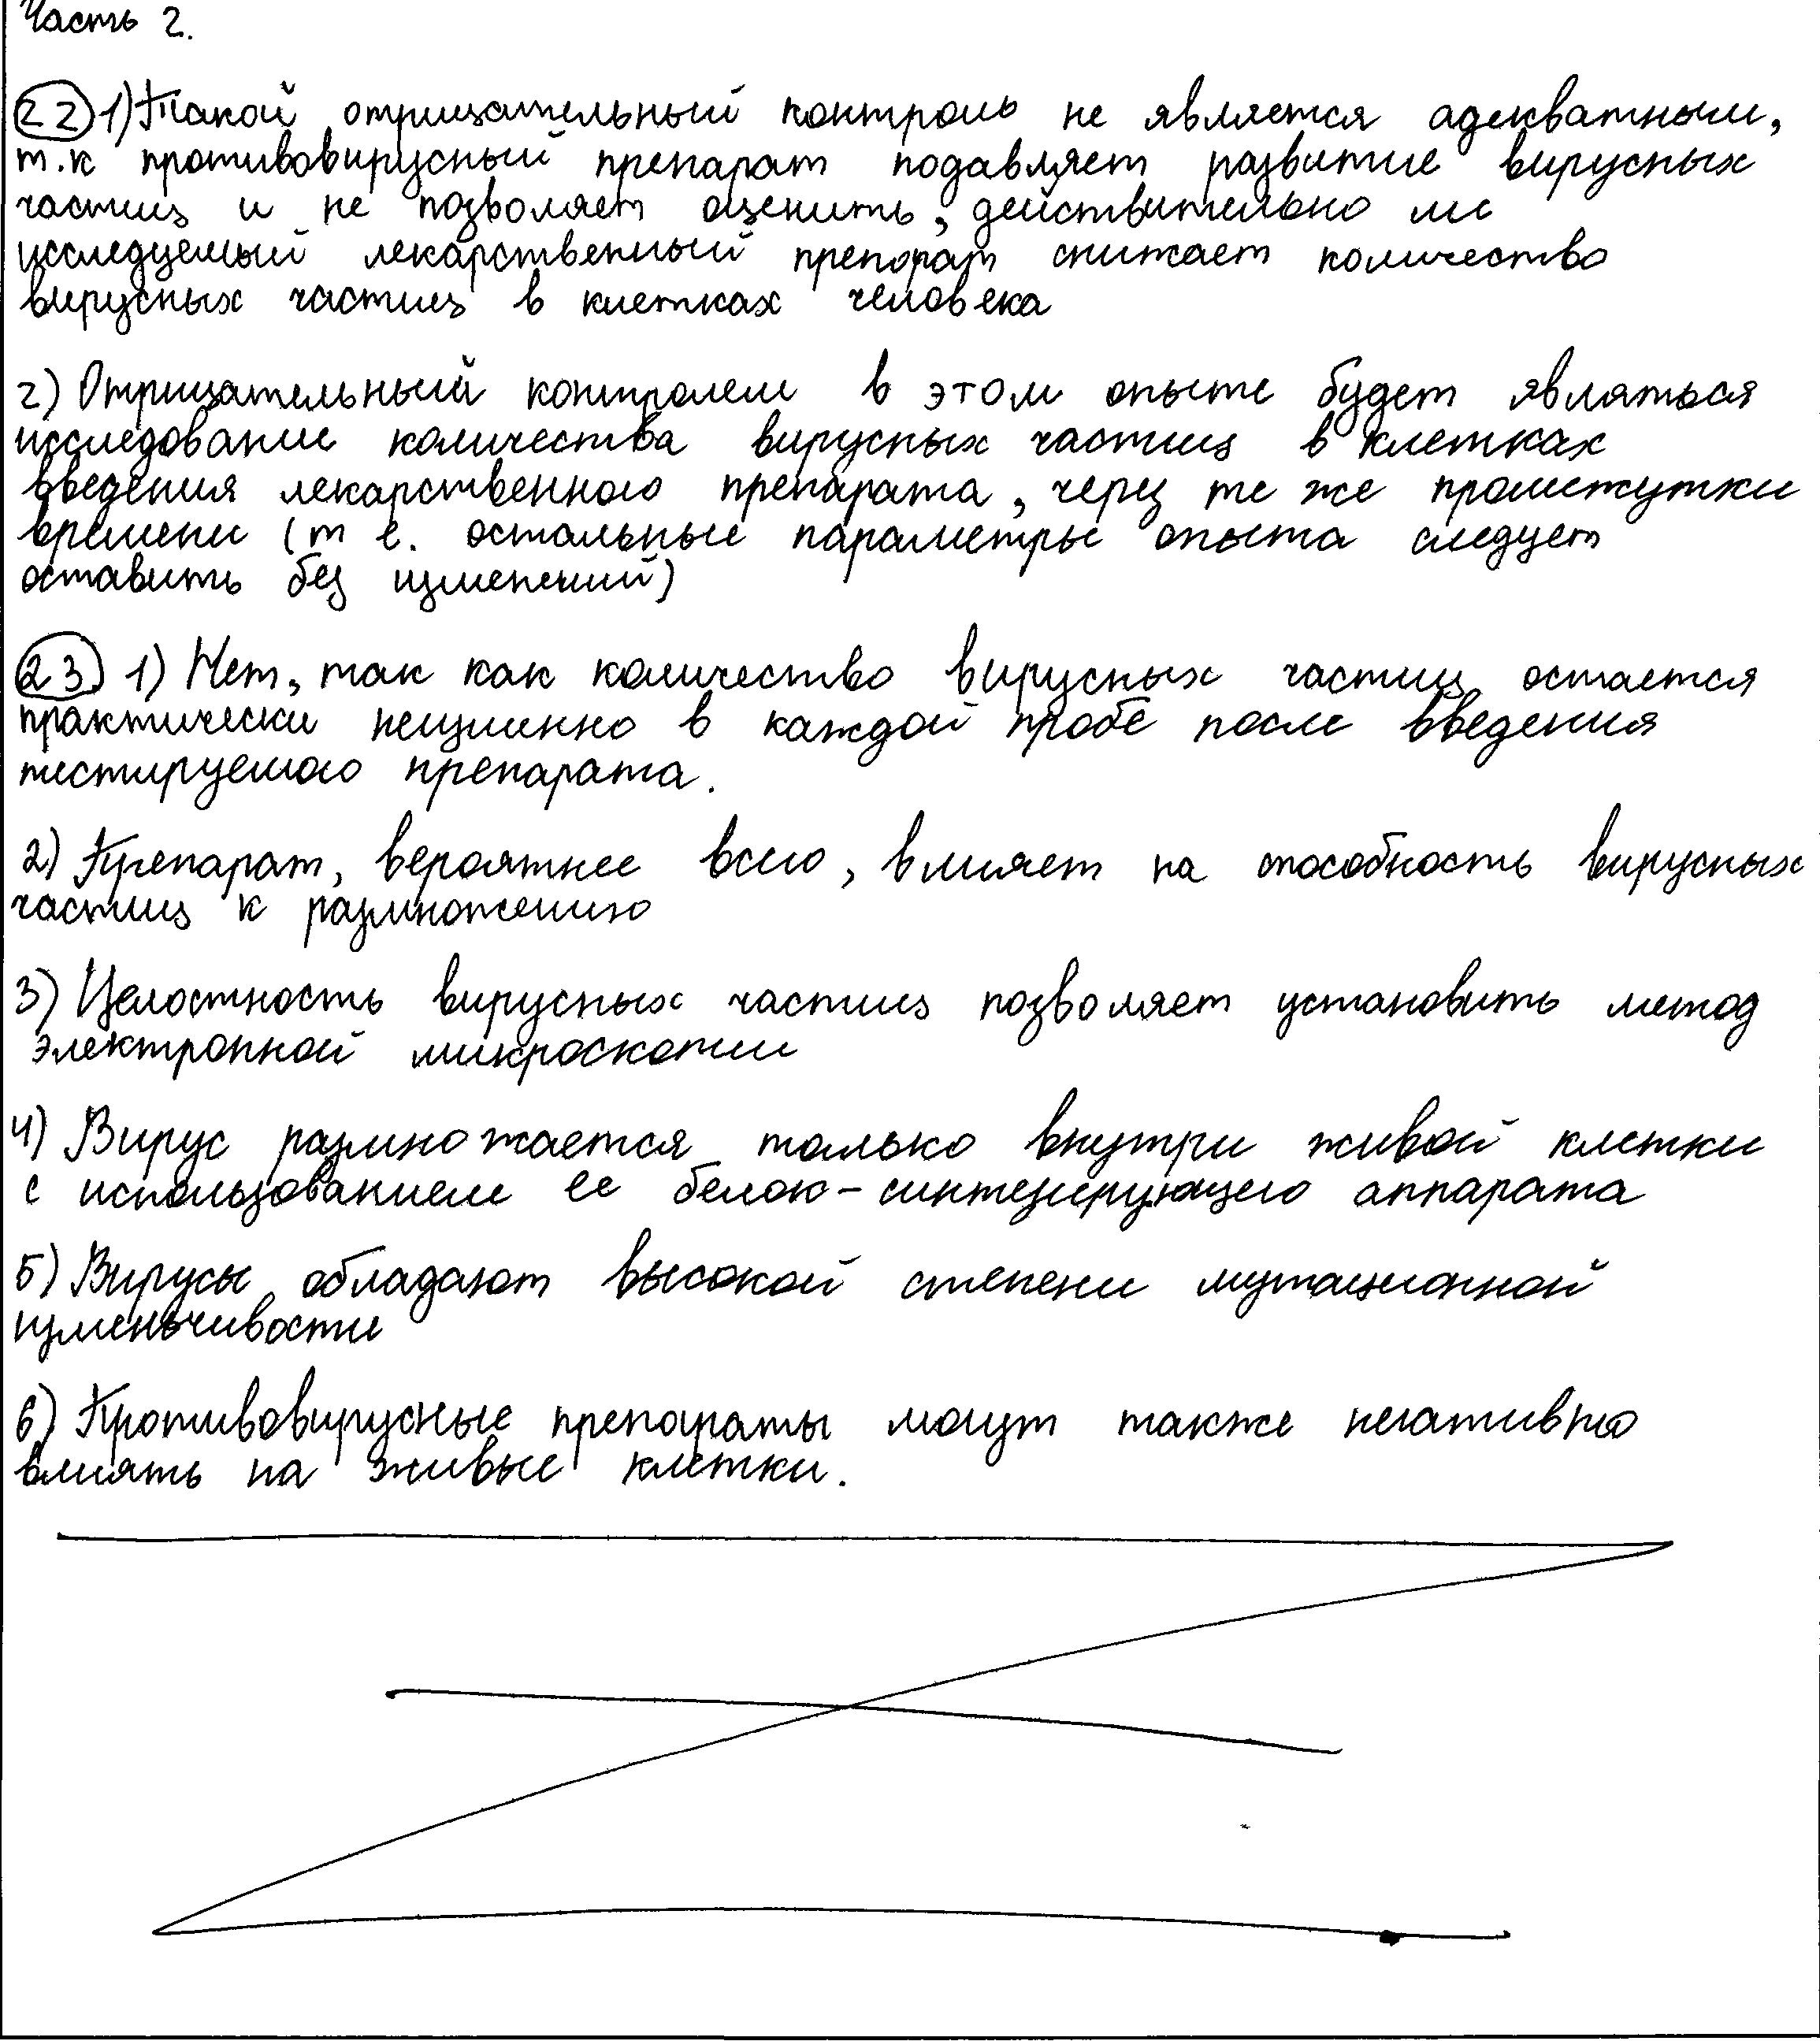 Часть 2.
22 1) Такой отрицательный контроль не является адекватным,
т.к противовирусный препарат подавляет развитие вирусных
частиц и не позволяет оценить, действительно ли
исследуемый лекарственный препорат снижает количество
вирусных частиц в клетках человека
2) Отрицательный контролем в этом опыте будет являться
исследование количества вирусных частиц в клетках
введения лекарственного препарата, через те же промежутки
времени (т е. остальные параметры опыта следует
оставить без изменений)
23 1) Нет, так как количество вирусных частиц остается
практически неизменно в каждой пробе после введения
тестируемого препарата.
2) Препарат, вероятнее всего, влияет на способность вирусных
частиц к размножению
3) Целостность вирусных частиц позволяет установить метод
электронной микроскопии
4) Вирус размножается только внутри живой клетки
с использованием ее белок-синтезирующего аппарата
5) Вирусы обладают высокой степени мутационной
изменьчивости
6) Противовирусные препараты могут также негативно
влиять на живые клетки.